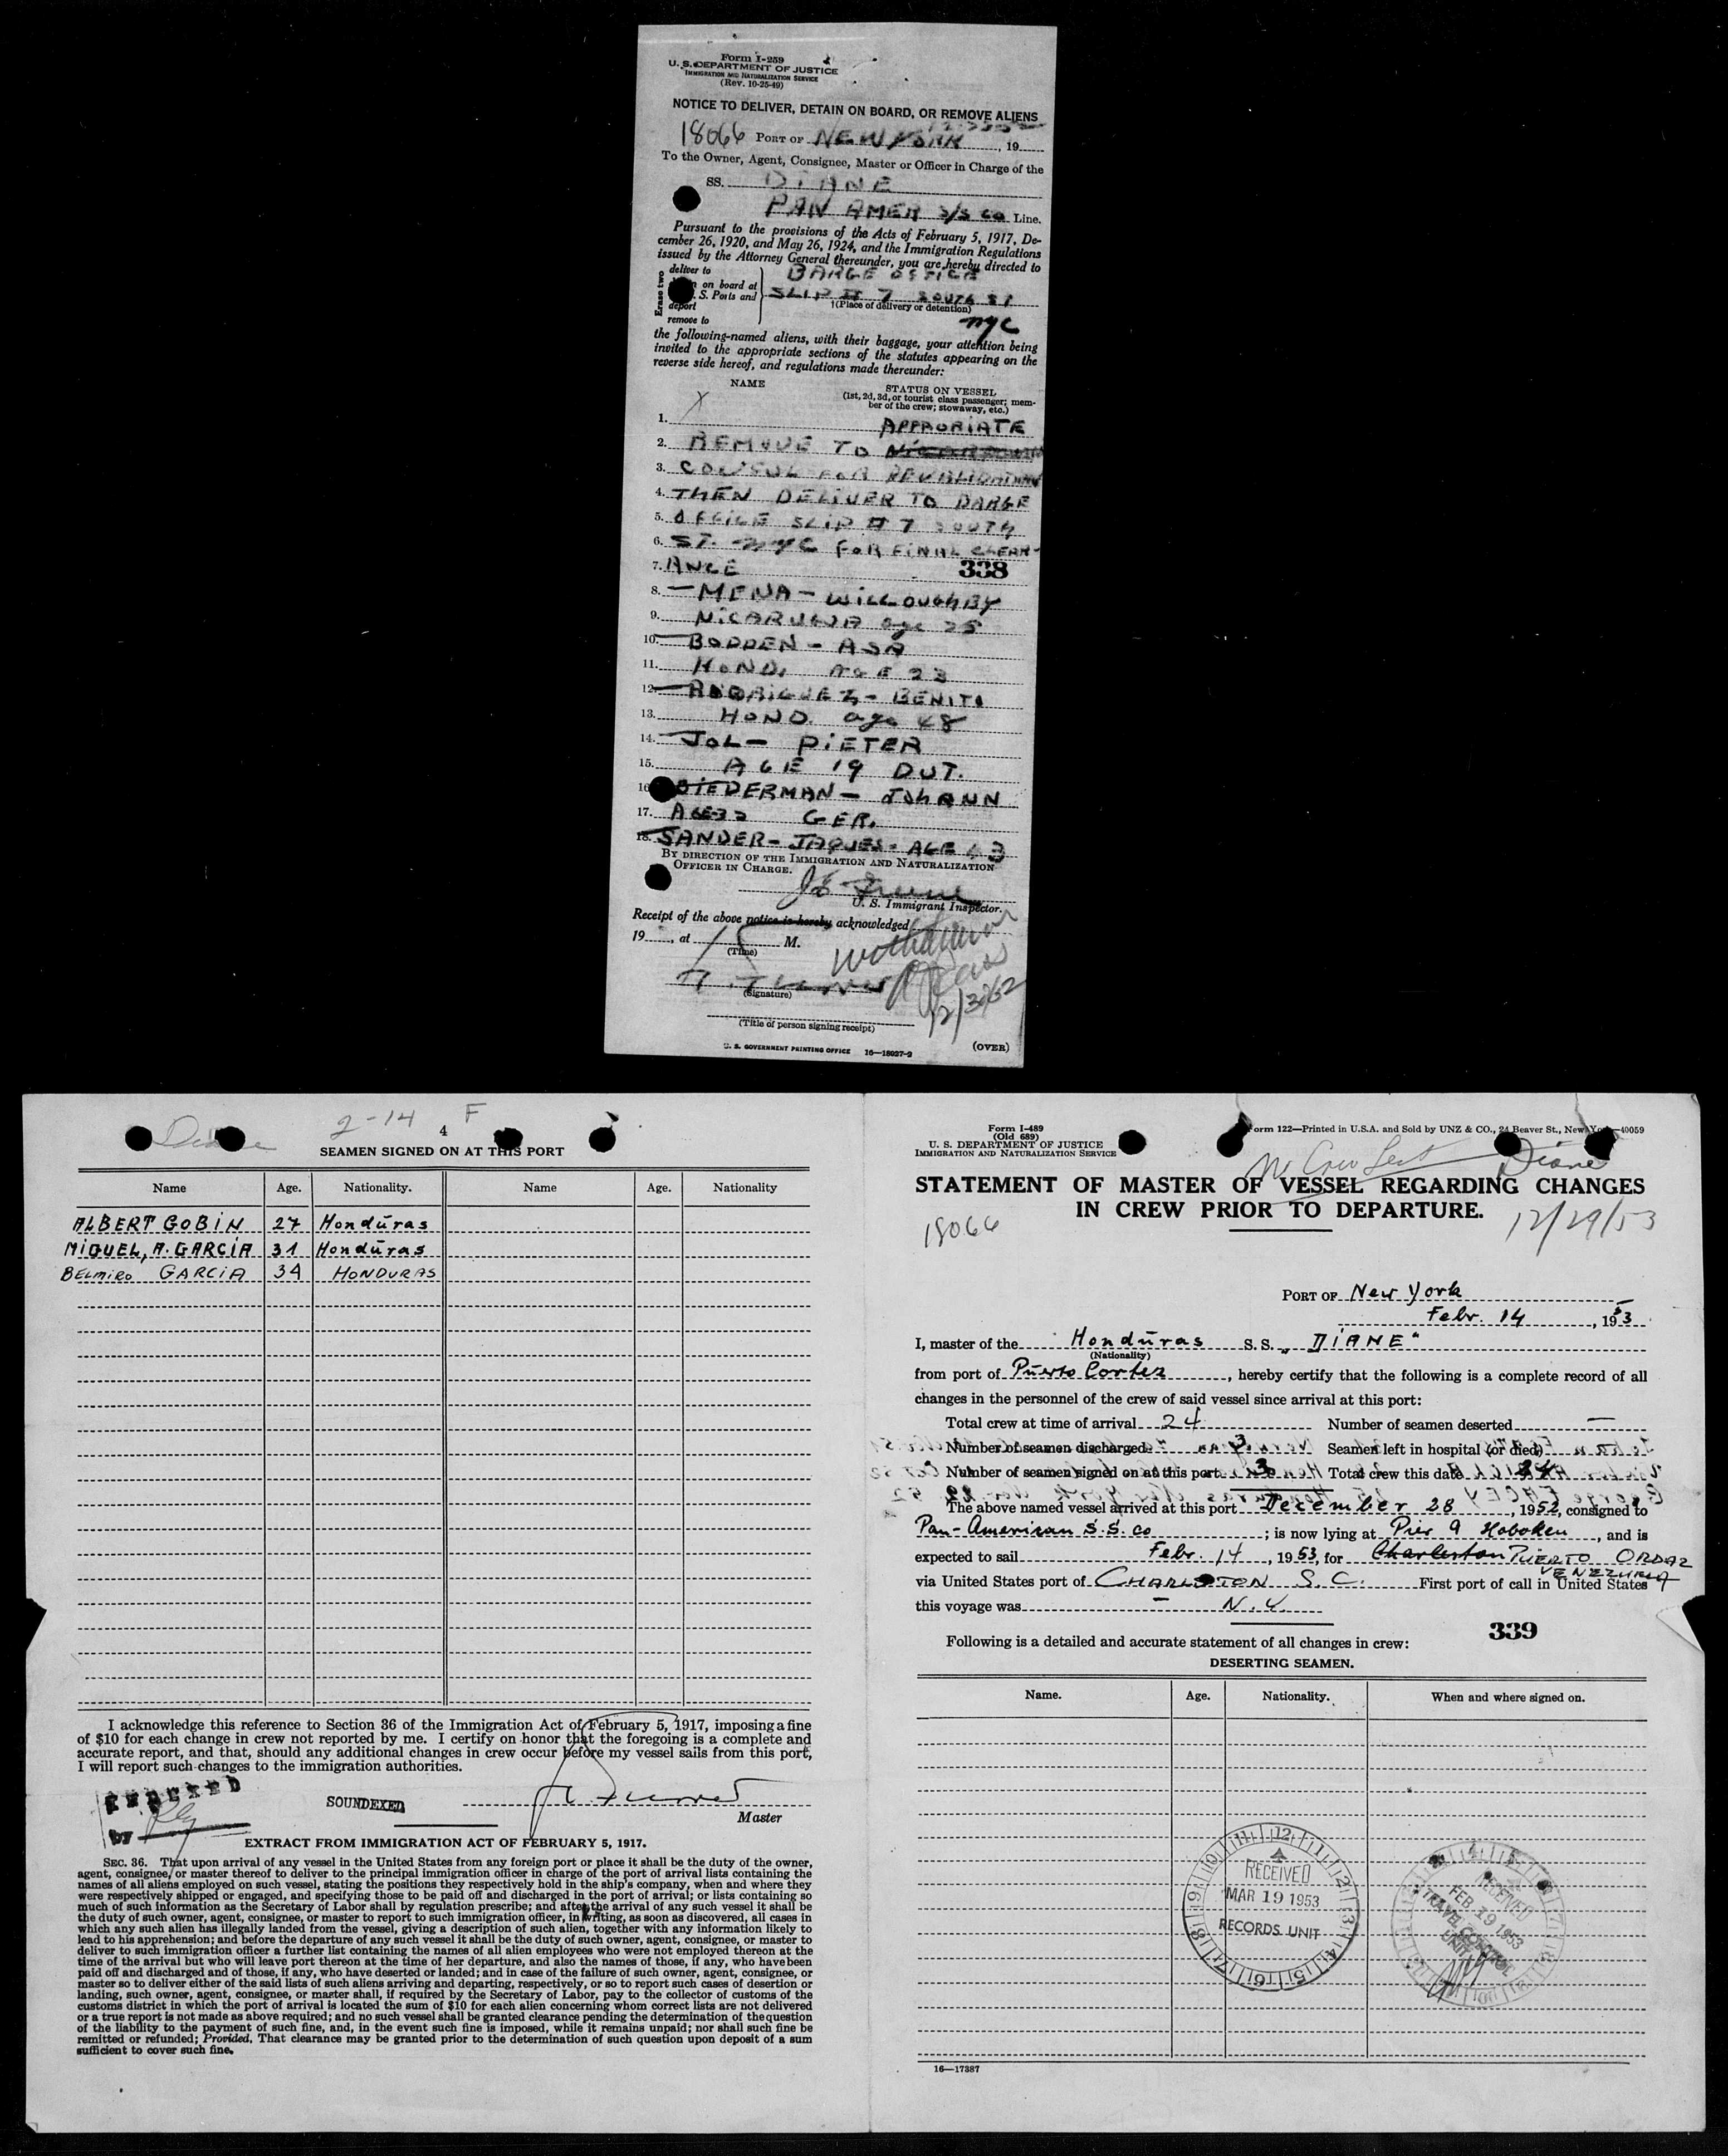 Form I-259
U. S. DEPARTMENT OF JUSTICE
IMMIGRATION AND NATURALIZATION SERVICE
(Rev. 10-25-49)
NOTICE TO DELIVER, DETAIN ON BOARD, OR REMOVE ALIENS
18066 PORT OF NEW YORK, 19
To the Owner, Agent, Consignee, Master or Officer in Charge of the
SS. DIANE
PAN AMER S/S Co Line.
Pursuant to the provisions of the Acts of February 5, 1917, De-
cember 26, 1920, and May 26, 1924, and the Immigration Regulations
issued by the Attorney General thereunder, you are hereby directed to
Erase two
deliver to BARGE OFFICE
on board at
S. Ports and SLIP # 7 SOUTH ST
deport †(Place of delivery or detention)
remove to NYC
the following-named aliens, with their baggage, your attention being
invited to the appropriate sections of the statutes appearing on the
reverse side hereof, and regulations made thereunder:
NAME STATUS ON VESSEL
(1st, 2d, 3d, or tourist class passenger; mem-
ber of the crew; stowaway, etc.)
X
1. APPRORIATE
2. REMOVE TO
3. CONSUL FOR REVALIDATION
4. THEN DELIVER TO BARGE
5. OFFICE SLIP # 7 SOUTH
6. ST. NYC FOR FINAL CLEAR-
7. ANCE 338
8. — MENA — WILLOUGHBY
9. NICARUGUA age 25
10. BODDEN — ASA
11. HOND. AGE 23
12. RODRIGUEZ — BENITO
13. HOND. age 48
14. JOL — PIETER
15. AGE 19 DUT.
16. BIEDERMAN — JOHANN
17. AGE 32 GER.
18. SANDER — JAQUES - AGE 43
BY DIRECTION OF THE IMMIGRATION AND NATURALIZATION
OFFICER IN CHARGE.
U. S. Immigrant Inspector.
Receipt of the above notice is hereby acknowledged
19, at M.
(Time)
12/30/52
(Signature)
(Title of person signing receipt)
U. S. GOVERNMENT PRINTING OFFICE 16—18927-2 (OVER)
Diane 2-14 F
4
SEAMEN SIGNED ON AT THIS PORT
Name Age. Nationality. Name Age. Nationality
ALBERT GOBIN 27 Honduras
MIGUEL, A. GARCIA 31 Honduras
BELMIRO GARCIA 34 HONDURAS
I acknowledge this reference to Section 36 of the Immigration Act of February 5, 1917, imposing a fine
of $10 for each change in crew not reported by me. I certify on honor that the foregoing is a complete and
accurate report, and that, should any additional changes in crew occur before my vessel sails from this port,
I will report such changes to the immigration authorities.
INDEXED
by
SOUNDEXED
Master
EXTRACT FROM IMMIGRATION ACT OF FEBRUARY 5, 1917.
SEC. 36. That upon arrival of any vessel in the United States from any foreign port or place it shall be the duty of the owner,
agent, consignee, or master thereof to deliver to the principal immigration officer in charge of the port of arrival lists containing the
names of all aliens employed on such vessel, stating the positions they respectively hold in the ship's company, when and where they
were respectively shipped or engaged, and specifying those to be paid off and discharged in the port of arrival; or lists containing so
much of such information as the Secretary of Labor shall by regulation prescribe; and after the arrival of any such vessel it shall be
the duty of such owner, agent, consignee, or master to report to such immigration officer, in writing, as soon as discovered, all cases in
which any such alien has illegally landed from the vessel, giving a description of such alien, together with any information likely to
lead to his apprehension; and before the departure of any such vessel it shall be the duty of such owner, agent, consignee, or master to
deliver to such immigration officer a further list containing the names of all alien employees who were not employed thereon at the
time of the arrival but who will leave port thereon at the time of her departure, and also the names of those, if any, who have been
paid off and discharged and of those, if any, who have deserted or landed; and in case of the failure of such owner, agent, consignee, or
master so to deliver either of the said lists of such aliens arriving and departing, respectively, or so to report such cases of desertion or
landing, such owner, agent, consignee, or master shall, if required by the Secretary of Labor, pay to the collector of customs of the
customs district in which the port of arrival is located the sum of $10 for each alien concerning whom correct lists are not delivered
or a true report is not made as above required; and no such vessel shall be granted clearance pending the determination of the question
of the liability to the payment of such fine, and, in the event such fine is imposed, while it remains unpaid; nor shall such fine be
remitted or refunded; Provided, That clearance may be granted prior to the determination of such question upon deposit of a sum
sufficient to cover such fine.
Form I-489
(Old 689)
U. S. DEPARTMENT OF JUSTICE
IMMIGRATION AND NATURALIZATION SERVICE
orm 122—Printed in U.S.A. and Sold by UNZ & CO., 24 Beaver St., New Yo—40059
No Crew List Diane
STATEMENT OF MASTER OF VESSEL REGARDING CHANGES
IN CREW PRIOR TO DEPARTURE.
18066 12/29/53
PORT OF New York
Febr. 14, 1953
I, master of the Honduras S. S. „DIANE"
(Nationality)
from port of Puerto Cortez, hereby certify that the following is a complete record of all
changes in the personnel of the crew of said vessel since arrival at this port:
Total crew at time of arrival 24 Number of seamen deserted —
Number of seamen discharged 3 Seamen left in hospital (or died)
Number of seamen signed on at this port 3 Total crew this date 24
The above named vessel arrived at this port December 28, 1952, consigned to
Pan-American S.S. co; is now lying at Pier 9 Hoboken, and is
expected to sail Febr. 14, 1953, for Charleston PUERTO ORDAZ
VENEZUELA
via United States port of CHARLSTON S. C. First port of call in United States
this voyage was — N.Y.
339
Following is a detailed and accurate statement of all changes in crew:
DESERTING SEAMEN.
Name. Age. Nationality. When and where signed on.
RECEIVED
MAR 19 1953
RECORDS UNIT
RECEIVED
FEB 19 1953
TRAVEL CONTROL
UNIT
16—17387